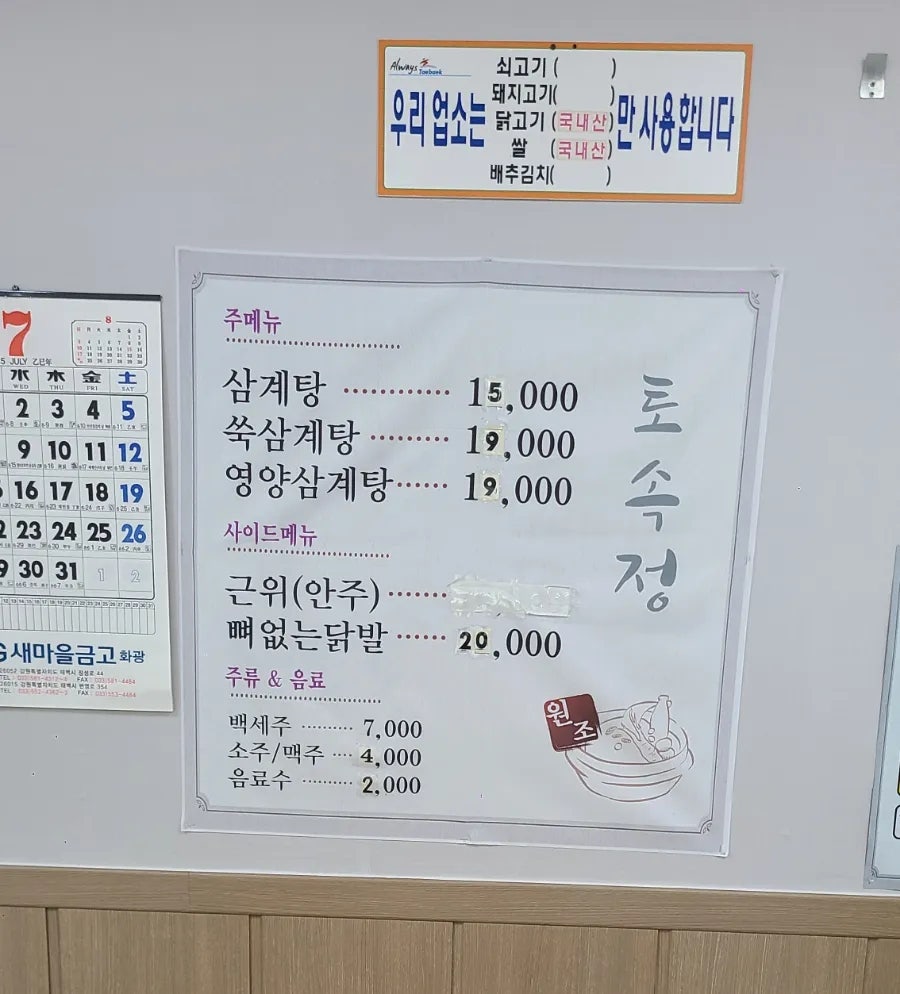 Always Taebaek
우리 업소는
쇠고기 ( )
돼지고기( )
닭고기 (국내산)
쌀 (국내산)
배추김치( )
만 사용합니다
7
8
5 JULY 乙巳年
水 木 金 土
WED THU FRI SAT
2 3 4 5
9 10 11 12
16 17 18 19
23 24 25 26
30 31 1 2
새마을금고 화광
주메뉴
삼계탕 ············ 15,000
쑥삼계탕 ········· 19,000
영양삼계탕······ 19,000
사이드메뉴
근위(안주) ······
뼈없는닭발 ······ 20,000
주류 & 음료
백세주 ·········· 7,000
소주/맥주 ···· 4,000
음료수 ·········· 2,000
토속정
원조